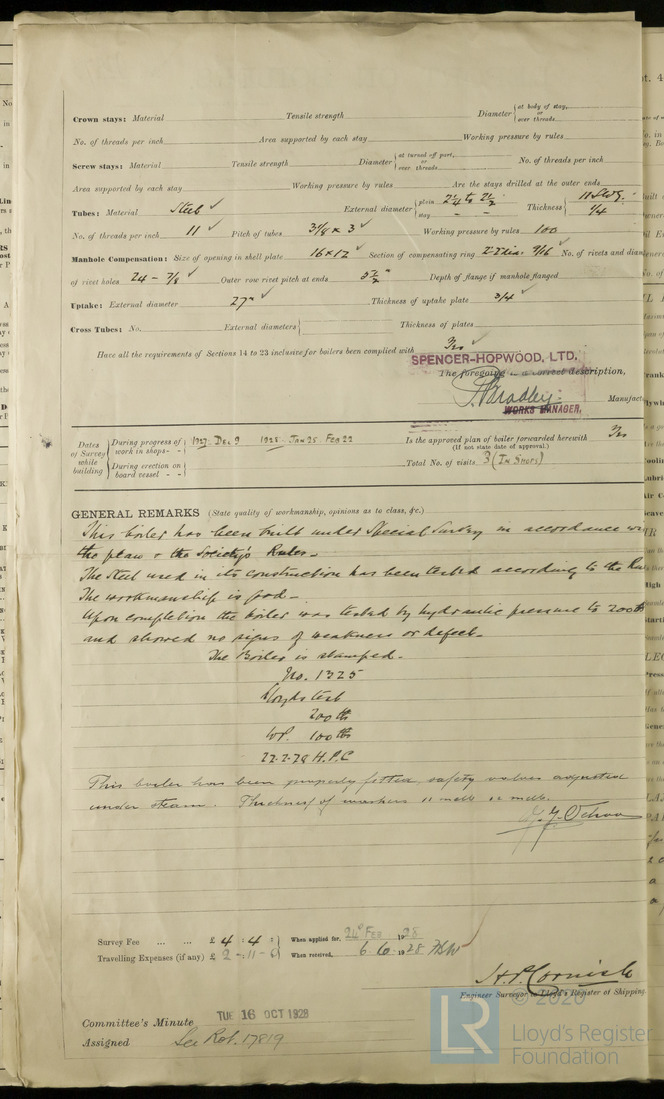 Crown stays: Material Tensile strength Diameter { at body of stay, or over threads.
No. of threads per inch Area supported by each stay Working pressure by rules
Screw stays: Material Tensile strength Diameter { at turned off part, or over threads. No. of threads per inch
Area supported by each stay Working pressure by rules Are the stays drilled at the outer ends
Tubes: Material Steel ✓ External diameter { plain 2¼ to 2½ stay - - Thickness { 11 S.W.G. ✓ ¼
No. of threads per inch 11 ✓ Pitch of tubes 3⅜ x 3 ✓ Working pressure by rules 100
Manhole Compensation: Size of opening in shell plate 16 x 12 ✓ Section of compensating ring 9/16 ✓ No. of rivets and diam
of rivet holes 24 - 7/8 ✓ Outer row rivet pitch at ends 5½" Depth of flange if manhole flanged
Uptake: External diameter 27" ✓ Thickness of uptake plate 3/4 ✓
Cross Tubes: No. External diameters { Thickness of plates
Have all the requirements of Sections 14 to 23 inclusive for boilers been complied with Yes ✓
SPENCER-HOPWOOD, LTD.
The foregoing is a correct description,
Bradley Manufact
WORKS MANAGER.
Dates of Survey while building { During progress of work in shops - - { 1927. Dec 9 1928. Jan 25 Feb 22
During erection on board vessel - - {
Is the approved plan of boiler forwarded herewith Yes
(If not state date of approval.)
Total No. of visits 3 (In Shops)
GENERAL REMARKS (State quality of workmanship, opinions as to class, &c.)
This boiler has been built under Special Survey in accordance wi
the plan & the Society's Rules.
The Steel used in its construction has been tested according to the Rul
The workmanship is good.
Upon completion the boiler was tested by hydraulic pressure to 200 lb
and showed no signs of weakness or defect.
The Boiler is stamped.
No. 1325
Lloyds test
200 lb
W.P. 100 lb
22.2.28 H.P.C
This boiler has been properly fitted, safety valves adjusted
under steam. Thickness of washers 11 m/m 12 m/m.
Ochoa
Survey Fee ... ... £ 4 : 4 : } When applied for, 24 Feb 1928
Travelling Expenses (if any) £ 2 - : 11 - 6 } When received, 6 6 1928
H.P. Cornish
Engineer Surveyor to Lloyd's Register of Shipping
Committee's Minute TUE 16 OCT 1928
Assigned See Rot. 17819
© 2020
LR
Lloyd's Register
Foundation